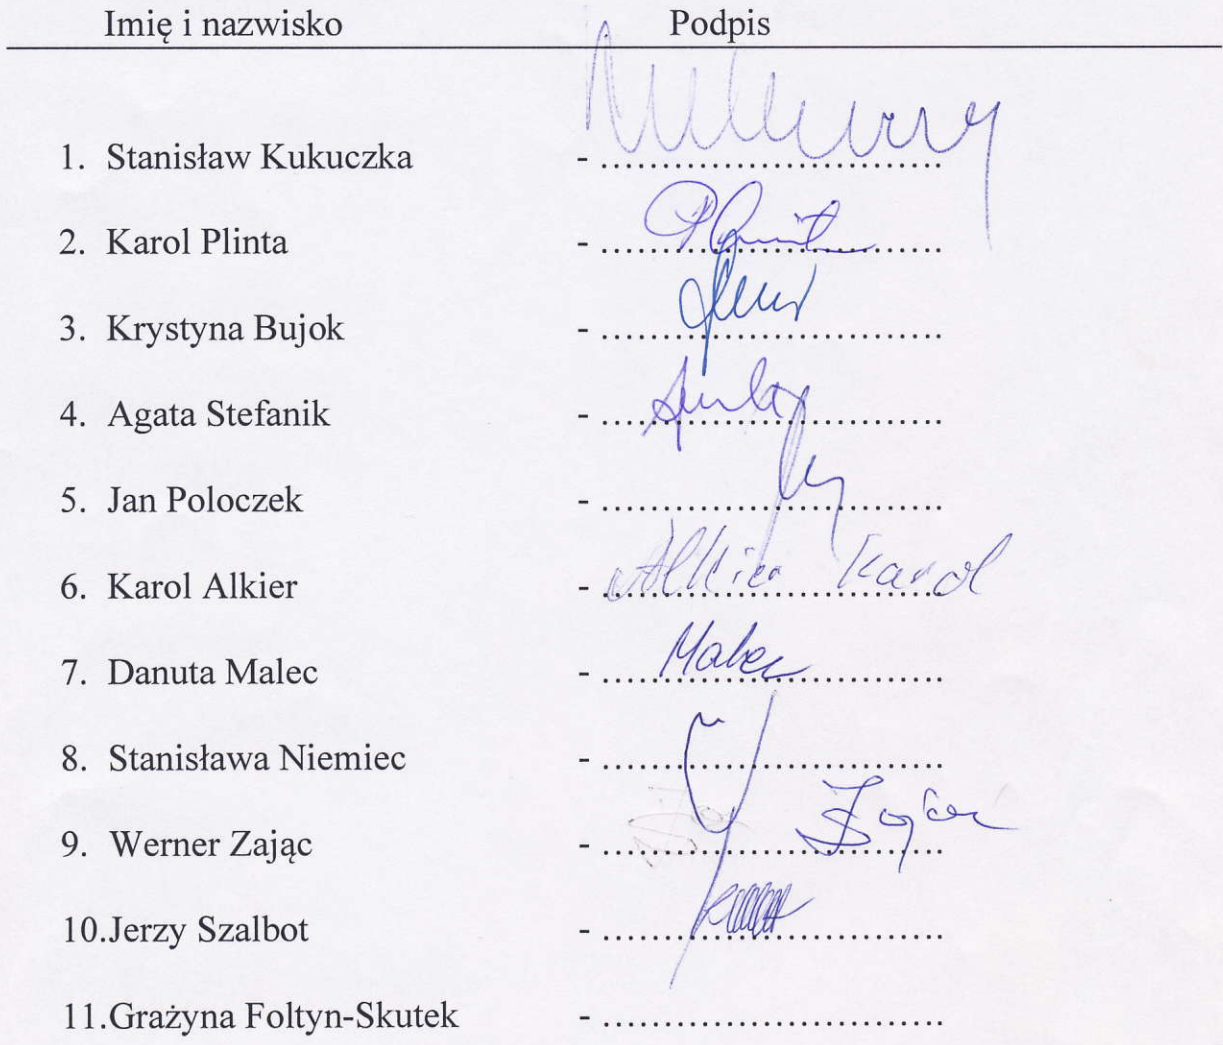 Imię i nazwisko Podpis
1. Stanisław Kukuczka - ..............................
2. Karol Plinta - ..............................
3. Krystyna Bujok - ..............................
4. Agata Stefanik - ..............................
5. Jan Poloczek - ..............................
6. Karol Alkier - .............................. Alkier Karol
7. Danuta Malec - .............................. Malec
8. Stanisława Niemiec - ..............................
9. Werner Zając - .............................. Zając
10.Jerzy Szalbot - ..............................
11.Grażyna Foltyn-Skutek - ..............................